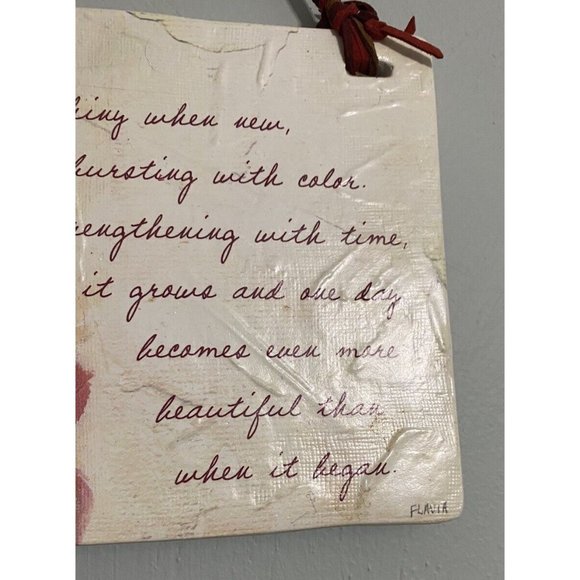 when new,
bursting with color.
with time,
it grows and one day
becomes even more
beautiful than
when it began.
FLAVIA